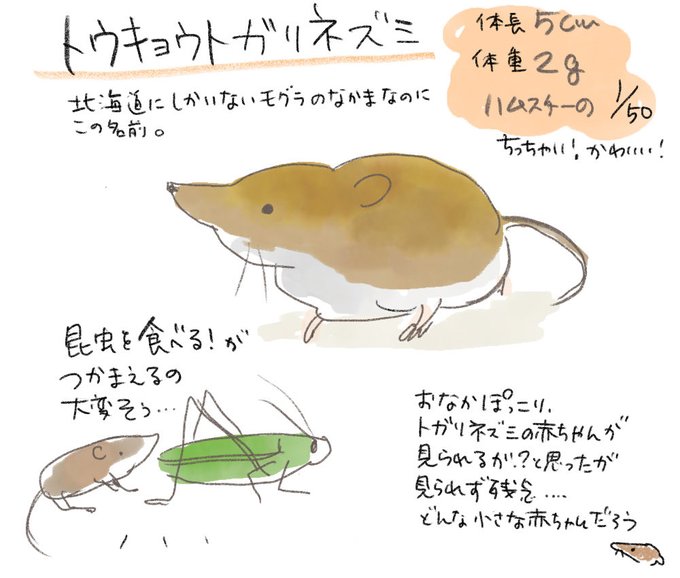 トウキョウトガリネズミ
体長5cm
体重2g
ハムスターの1/50
ちっちゃい!かわいい!
北海道にしかいないモグラのなかまなのに
この名前。
昆虫を食べる!が
つかまえるの
大変そう…
おなかぽっこり、
トガリネズミの赤ちゃんが
見られるか!?と思ったが
見られず残念....
どんな小さな赤ちゃんだろう